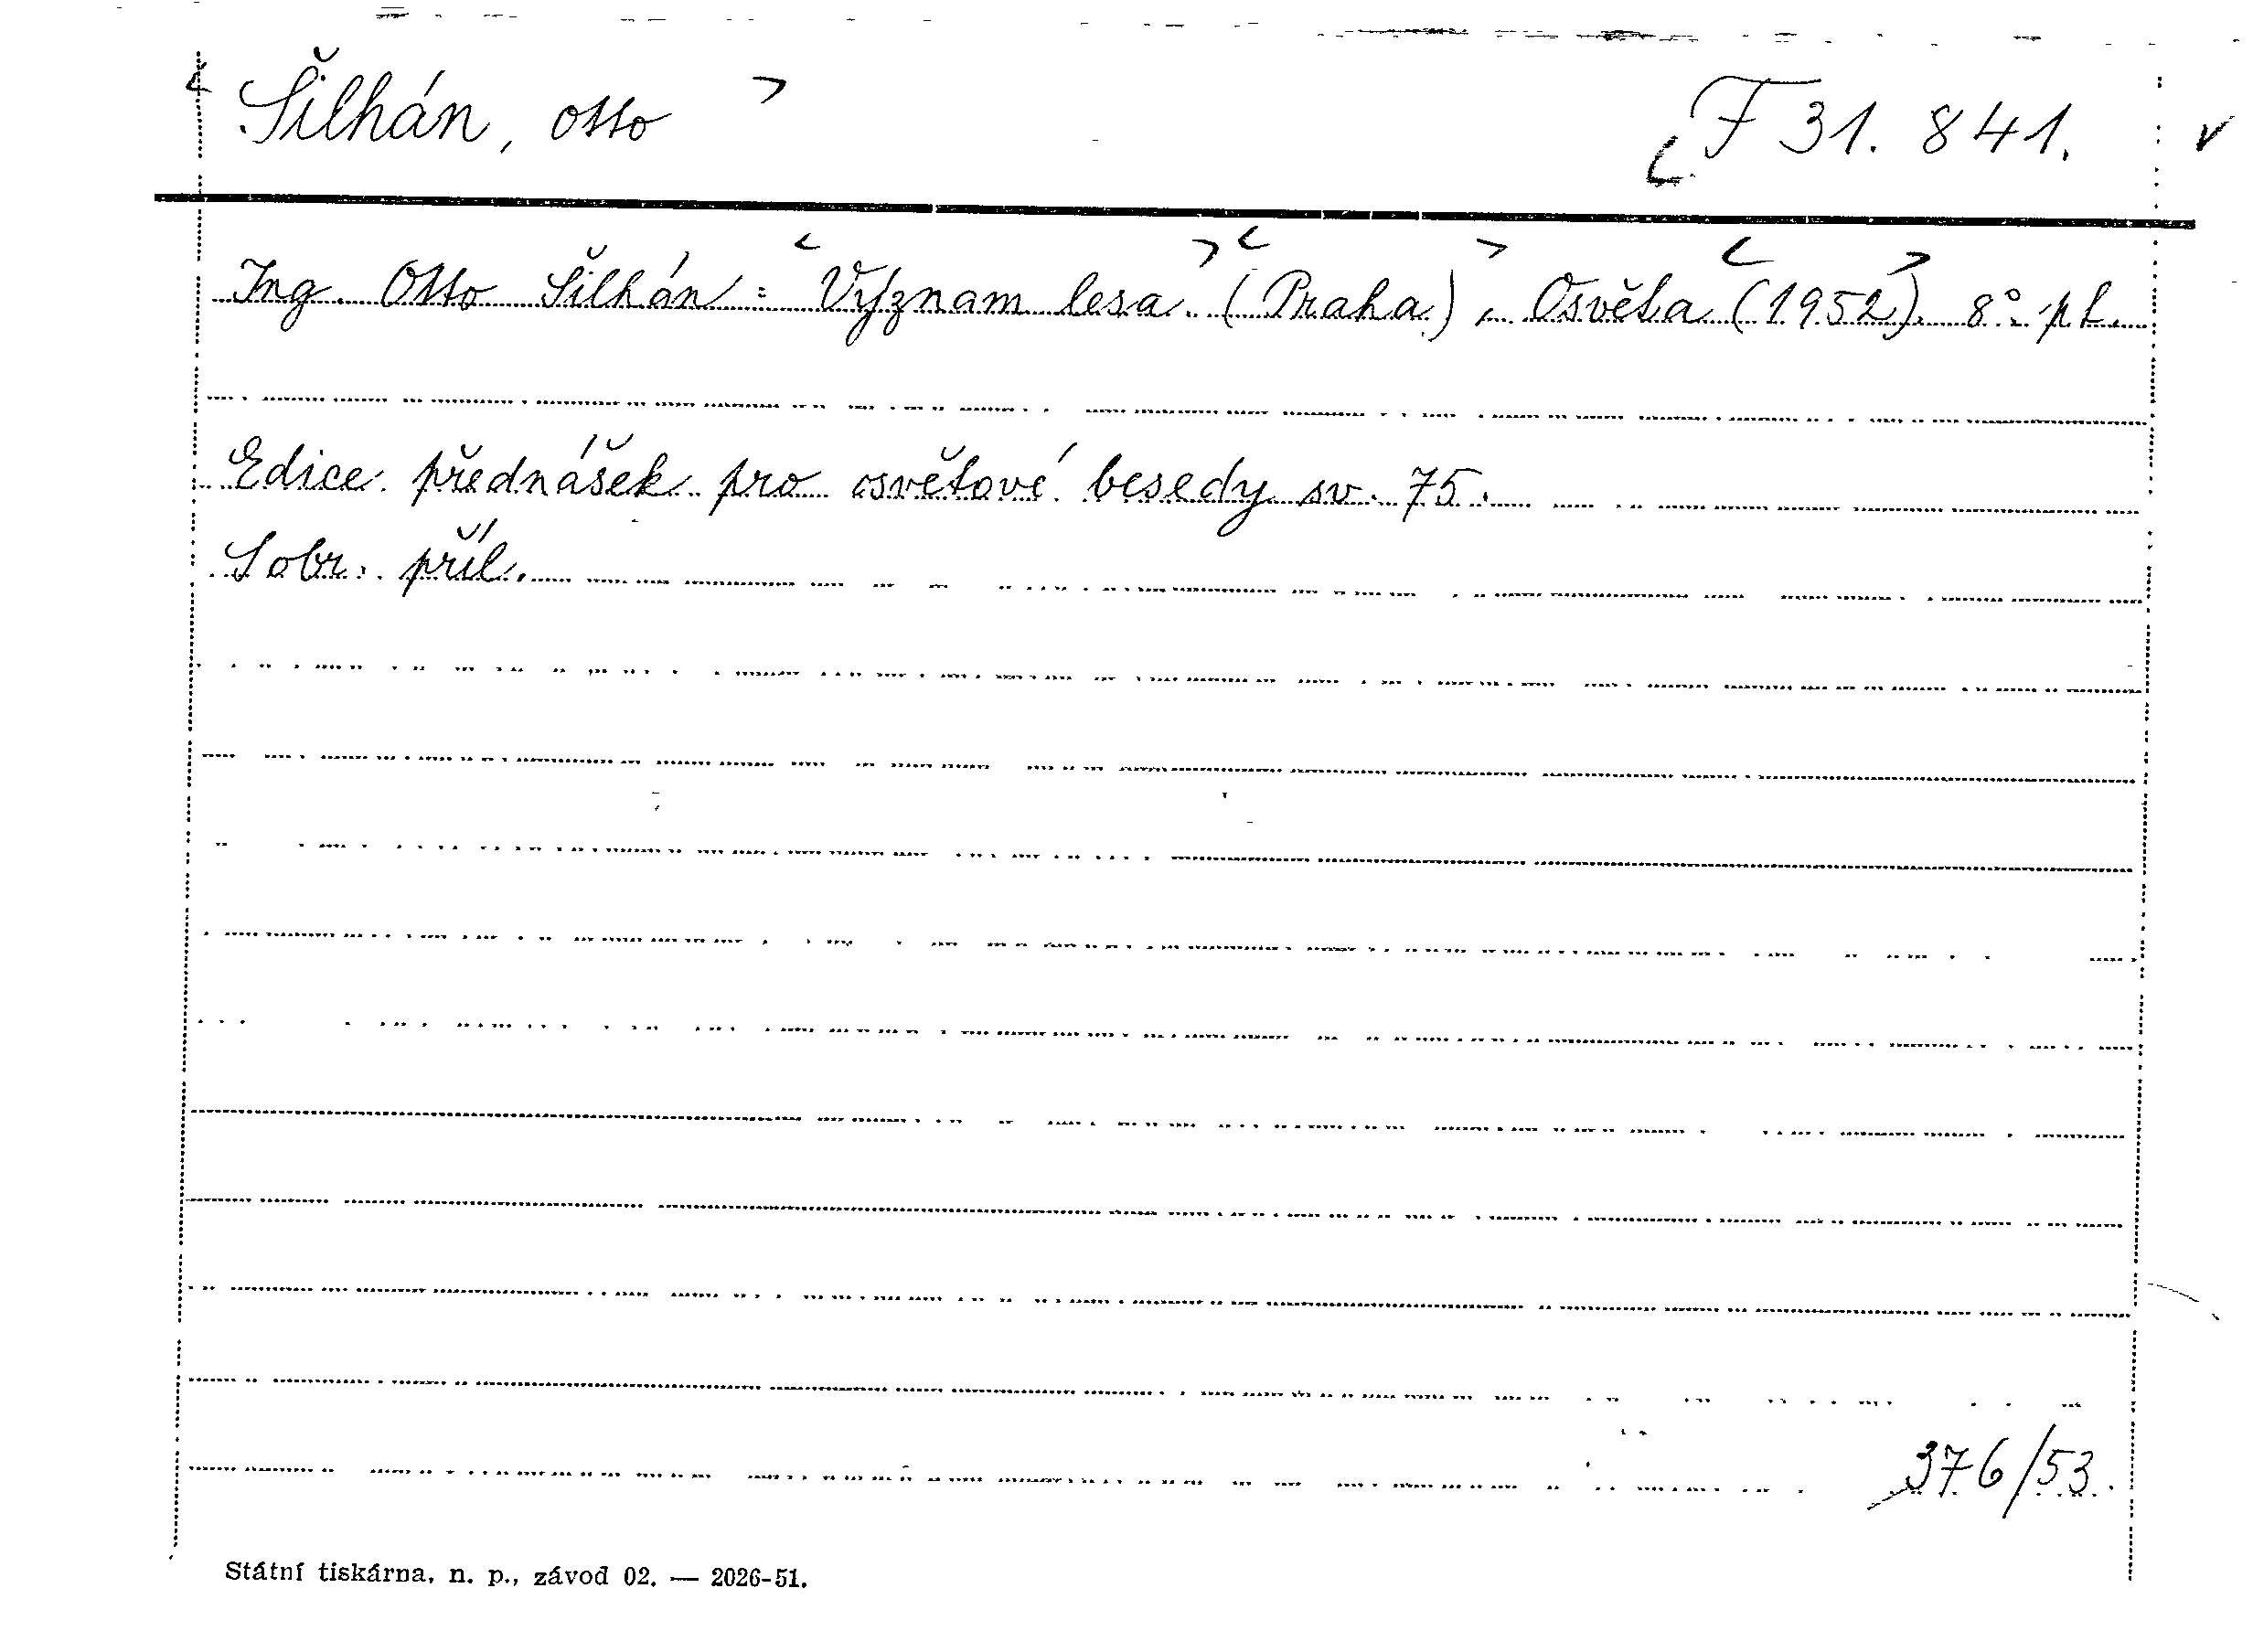 Šilhán, Otto
F 31. 841.
Ing. Otto Šilhán: Význam lesa. (Praha), Osvěta (1952). 8° pl.
Edice přednášek pro osvětové besedy sv. 75.
Sobr. příl.
376/53.
Státní tiskárna, n. p., závod 02. — 2026-51.